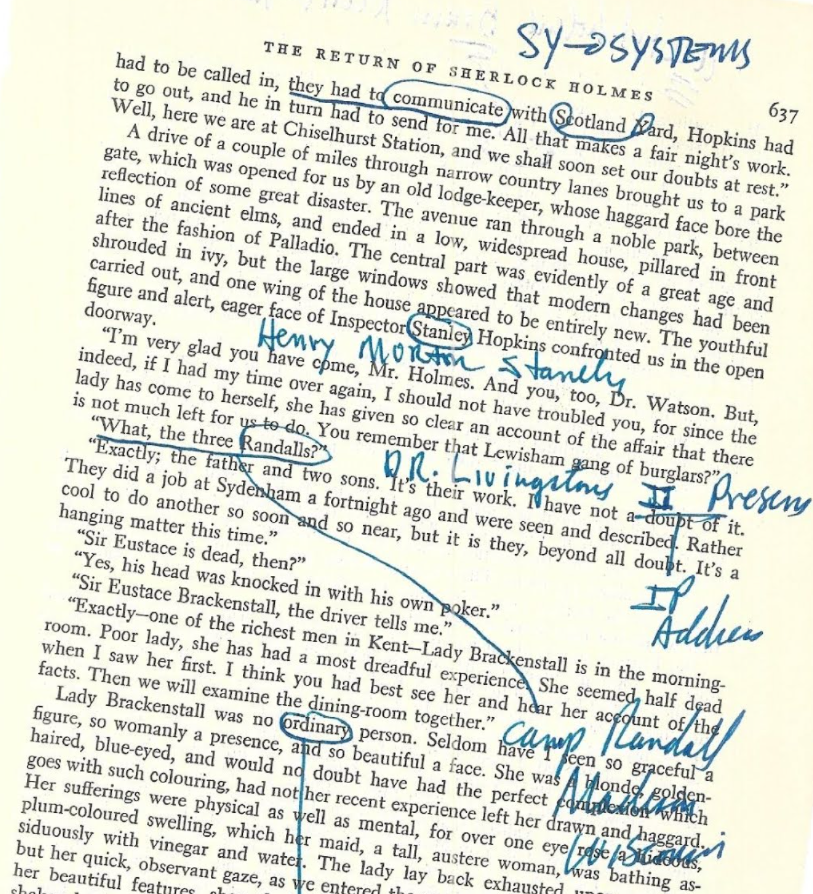 SY→SYSTEMS
THE RETURN OF SHERLOCK HOLMES 637
had to be called in, they had to communicate with Scotland Yard, Hopkins had
to go out, and he in turn had to send for me. All that makes a fair night's work.
Well, here we are at Chiselhurst Station, and we shall soon set our doubts at rest."
A drive of a couple of miles through narrow country lanes brought us to a park
gate, which was opened for us by an old lodge-keeper, whose haggard face bore the
reflection of some great disaster. The avenue ran through a noble park, between
lines of ancient elms, and ended in a low, widespread house, pillared in front
after the fashion of Palladio. The central part was evidently of a great age and
shrouded in ivy, but the large windows showed that modern changes had been
carried out, and one wing of the house appeared to be entirely new. The youthful
figure and alert, eager face of Inspector Stanley Hopkins confronted us in the open
doorway.
Henry Morton Stanely
"I'm very glad you have come, Mr. Holmes. And you, too, Dr. Watson. But,
indeed, if I had my time over again, I should not have troubled you, for since the
lady has come to herself, she has given so clear an account of the affair that there
is not much left for us to do. You remember that Lewisham gang of burglars?"
"What, the three Randalls?"
DR. Livingstons II Presens
"Exactly; the father and two sons. It's their work. I have not a doubt of it.
They did a job at Sydenham a fortnight ago and were seen and described. Rather
cool to do another so soon and so near, but it is they, beyond all doubt. It's a
hanging matter this time."
"Sir Eustace is dead, then?"
"Yes, his head was knocked in with his own poker."
IP
Address
"Sir Eustace Brackenstall, the driver tells me."
"Exactly—one of the richest men in Kent—Lady Brackenstall is in the morning-
room. Poor lady, she has had a most dreadful experience. She seemed half dead
when I saw her first. I think you had best see her and hear her account of the
facts. Then we will examine the dining-room together."
Camp Randall
Madison
Wisconsin
Lady Brackenstall was no ordinary person. Seldom have I seen so graceful a
figure, so womanly a presence, and so beautiful a face. She was a blonde, golden-
haired, blue-eyed, and would no doubt have had the perfect complexion which
goes with such colouring, had not her recent experience left her drawn and haggard.
Her sufferings were physical as well as mental, for over one eye rose a hideous,
plum-coloured swelling, which her maid, a tall, austere woman, was bathing as-
siduously with vinegar and water. The lady lay back exhausted
but her quick, observant gaze, as we entered the
her beautiful features,